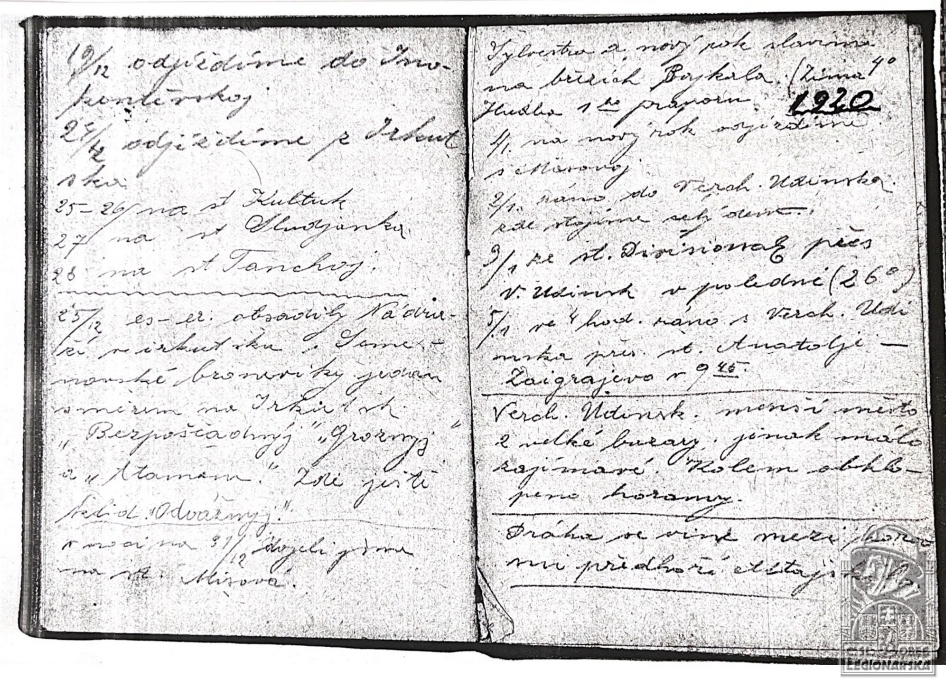 19/12 odjíždíme do Ino-
kentěvskoj
24/12 odjíždíme z Irkut
ska
25-26/ na st Kultuk
27/ na st Sludjanka
28 na st Tanchoj.
25/12 es-er. obsadily Nádra-
ží v irkutsku. Seme-
novské broneviky jedou
směrem na Irkutsk
"Bezpoščadnyj" "Groznyj"
a "Ataman." Zde ještě
klid. "Odvážnyj."
v noci na 31/12 dojeli jsme
na st. Misová.
Sylvestra a nový rok slavíme
na březích Bajkala. (Zima 4°
Hudba 1 ho praporu. 1920
1/1. na nový rok odjíždíme
s Misovoj
2/1. ráno do Verch. Udinska
kde stojíme
3/1 ze st. Divisionaë přes
V. Udinsk v poledne (26°)
5/1 ve 4 hod. ráno s Verch. Udi
nska přes st. Anatolje-
Zaigrajevo v 9 45.
Verch. Udinsk. menší město
2 velké bazary. jinak málo
zajímavé. Kolem obklo-
peno horamy.
Dráha se vine mezi horo
mi předhoří
ČSL. OBEC
LEGIONÁŘSKÁ